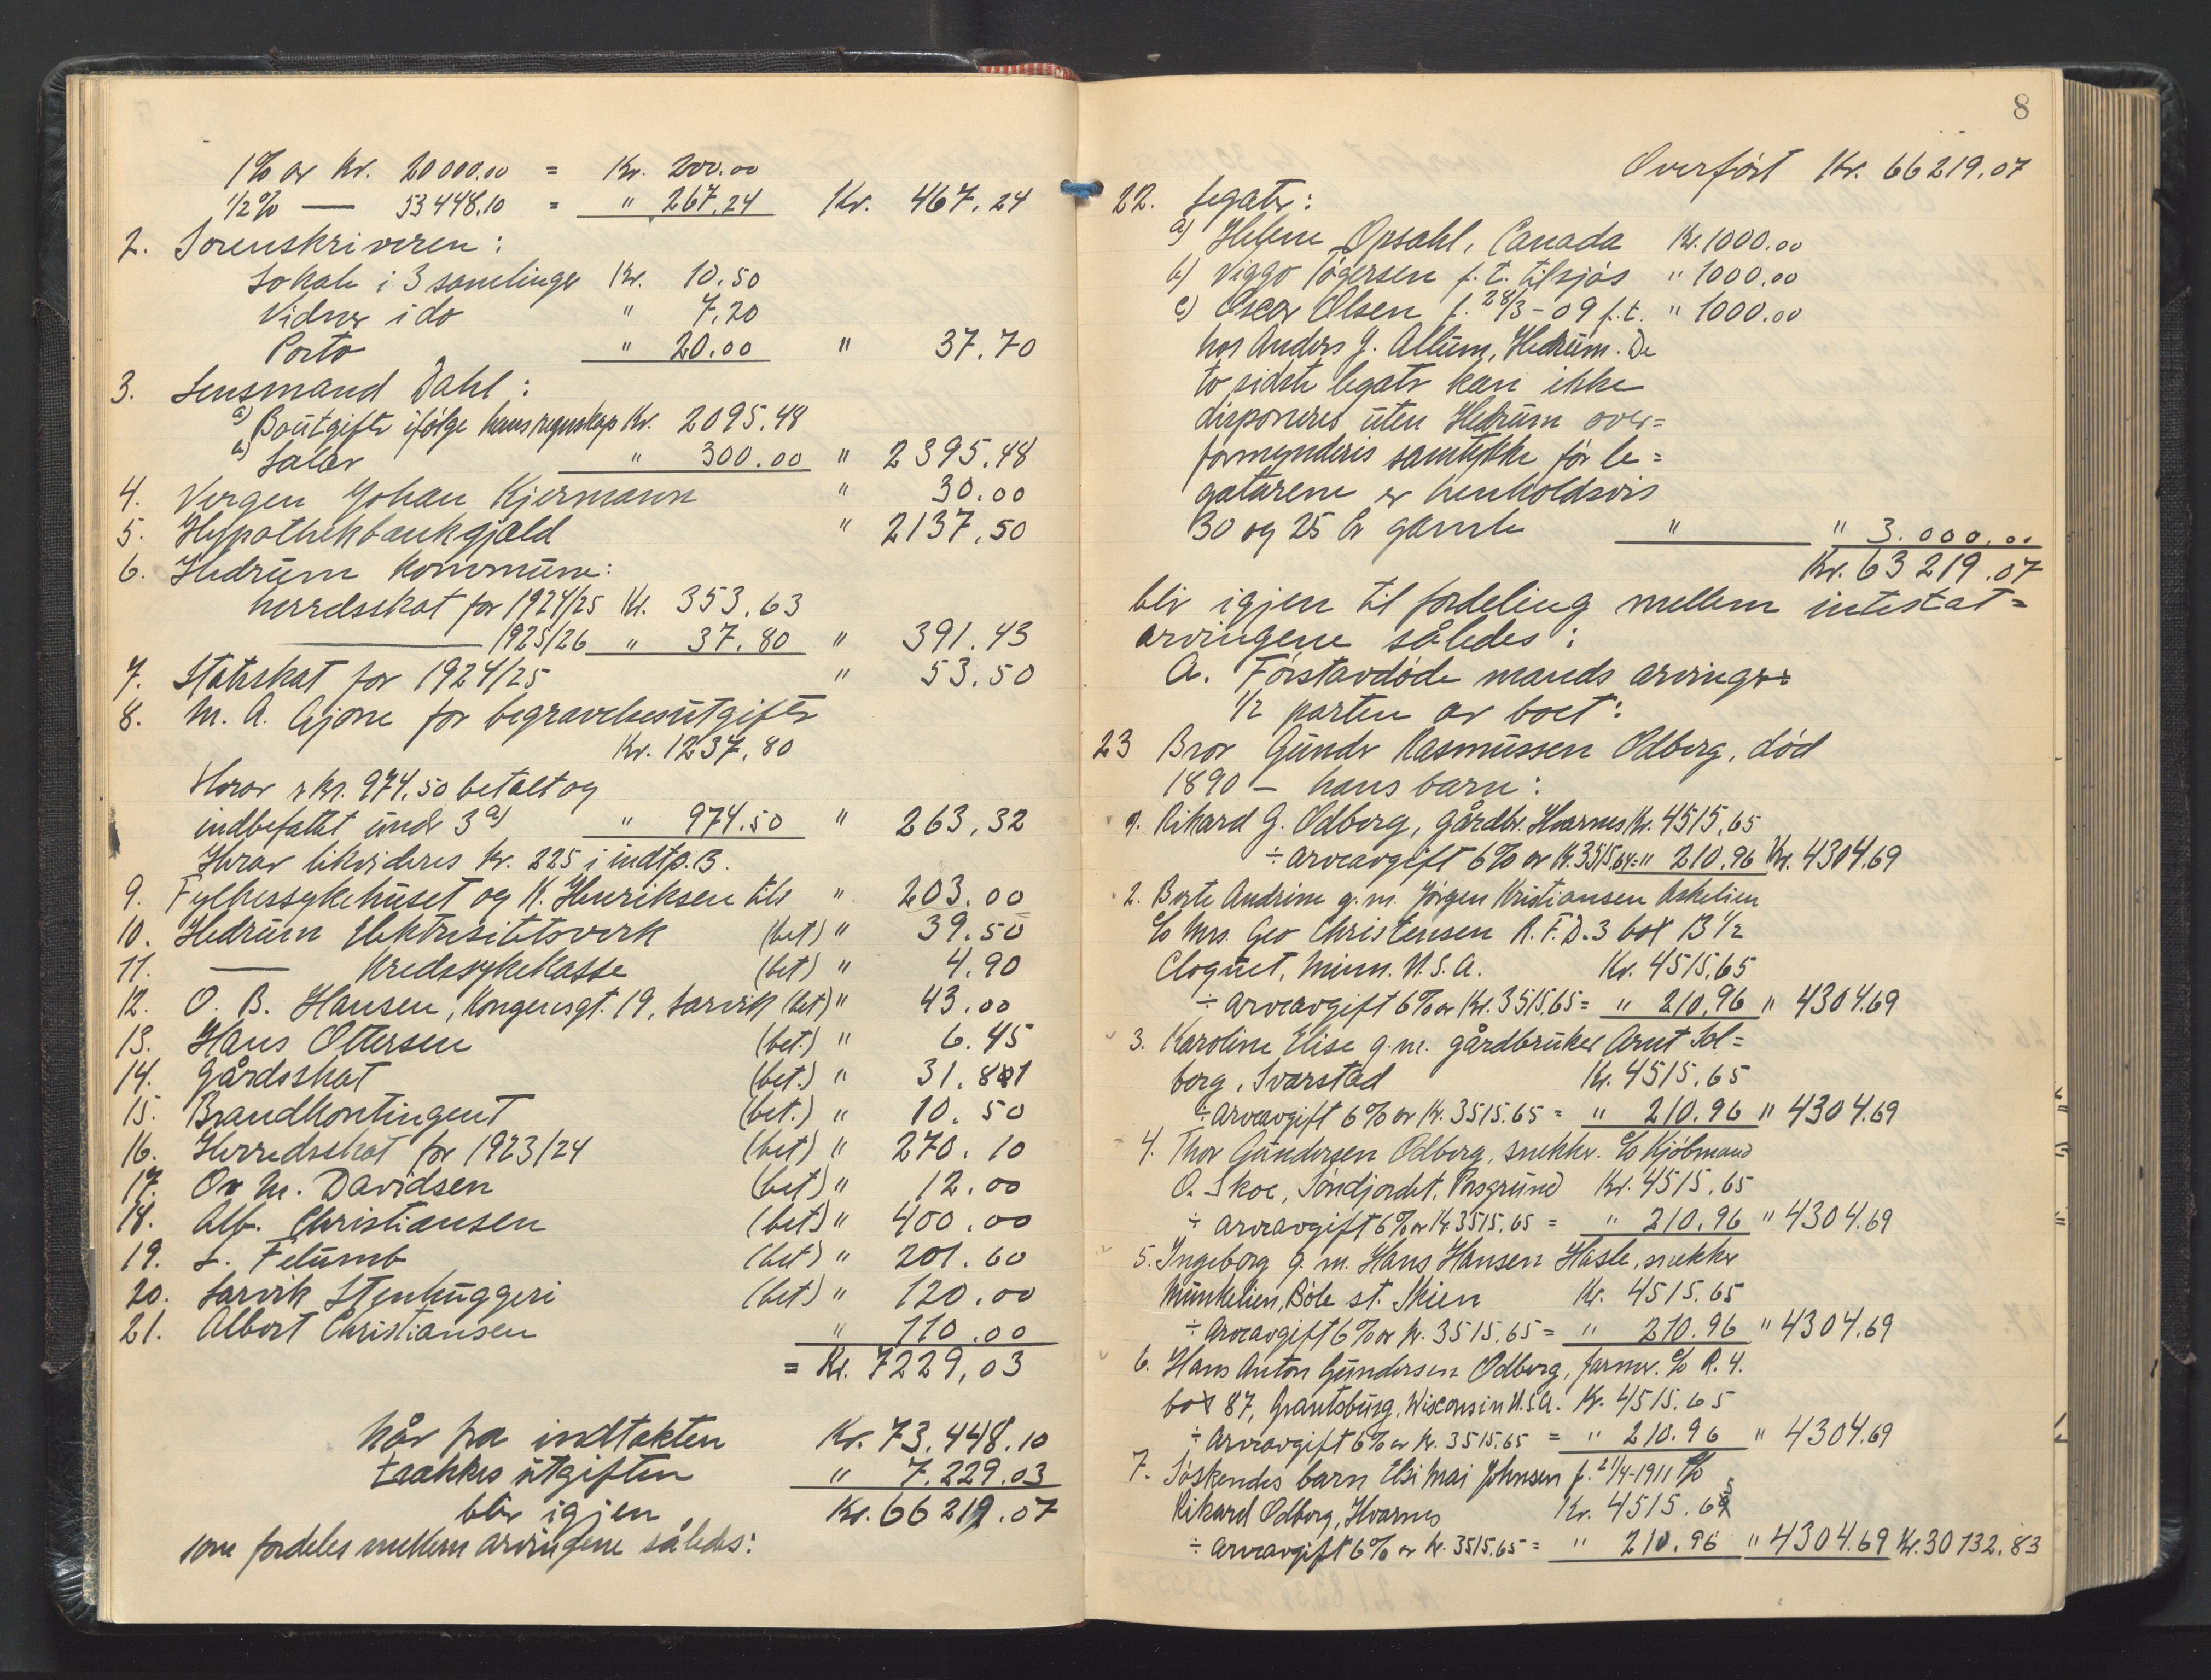 1% av Kr. 20000.00 = Kr. 200.00
1/2% — 53448.10 = " 267.24 Kr. 467.24
2. Sorenskriveren:
Lokale i 3 samlinger Kr. 10.50
Vidner i do " 7.20
Porto " 20.00 " 37.70
3. Lensmand Dahl:
a) Boutgifter ifølge hans regnskap Kr. 2095.48
b) Salær " 300.00 " 2395.48
4. Vergen Johan Kjermann " 30.00
5. Hypothekbankgjæld " 2137.50
6. Hedrum kommune:
herredsskat for 1924/25 Kr. 353.63
— 1925/26 " 37.80 " 391.43
7. Statsskat for 1924/25 " 53.50
8. M. A. Gjone for begravelsesutgifter
Kr. 1237.80
Herav er kr. 974.50 betalt og
indbefattet under 3 a) " 974.50 " 263.32
Herav likvideres kr. 225 i indtp. 13.
9. Fylkessykehuset og K. Henriksen tils " 203.00
10. Hedrum Elektrisitetsverk (bet) " 39.50
11. — Kredssykekasse (bet) " 4.90
12. O. B. Hansen, Kongensgt. 19, Larvik (bet) " 43.00
13. Hans Ottersen (bet.) " 6.45
14. Gårdsskat (bet.) " 31.81
15. Brandkontingent (bet.) " 10.50
16. Herredsskat for 1923/24 (bet) " 270.10
17. Ov M. Davidsen (bet) " 12.00
18. Alb. Christiansen (bet) " 400.00
19. L. Felumb (bet) " 201.60
20. Larvik Stenhuggeri (bet) " 120.00
21. Albert Christiansen " 110.00
= Kr. 7229,03
Når fra indtækten Kr. 73.448.10
trækkes utgiften " 7.229.03
blir igjen Kr. 66219.07
som fordeles mellem arvingene således:
8
Overført Kr. 66219.07
22. Legater:
a) Helene Opsahl, Canada Kr. 1000.00
b) Viggo Tøgersen f.t. tilsjøs " 1000.00
c) Oscar Olsen f. 28/3-09 f.t. " 1000.00
hos Anders J. Allum, Hedrum. De
to sidste legater kan ikke
disponeres uten Hedrum over=
formynderis samtykke før le=
gatarene er henholdsvis
30 og 25 år gamle " " 3.000.00
Kr. 63219.07
blir igjen til fordeling mellem intestat=
arvingene således:
A. Førstavdøde mands arvinger
1/2 parten av boet:
23 Bror Gunder Rasmussen Odberg, død
1890 – hans barn:
1. Rikard G. Odberg, gårdbr. Hvarnes Kr. 4515,65
÷ arveavgift 6% av Kr. 3515.64 = " 210.96 Kr. 4304.69
2. Berte Andrine g.m. Jørgen Kristiansen Askelien
c/o Mrs. Geo Christensen R.F.D. 3 box 13 1/2
Cloquet, Minn. U.S.A. Kr. 4515,65
÷ arveavgift 6% av Kr. 3515.65 = " 210.96 " 4304.69
3. Karoline Elise g.m. gårdbruker Arnt Sol=
berg, Svarstad Kr. 4515.65
÷ arveavgift 6% av Kr. 3515.65 = " 210.96 " 4304.69
4. Thor Gundersen Odberg, snekker. c/o Kjøbmand
O. Skoe, Tondjordet. Porsgrund Kr. 4515.65
÷ arveavgift 6% av Kr. 3515.65 = " 210.96 " 4304.69
5. Ingeborg g.m. Hans Hansen Hasle, snekker
Munkelien, Bøle st. Skien Kr. 4515.65
÷ arveavgift 6% av Kr. 3515.65 = " 210.96 " 4304.69
6. Hans Anton Gundersen Odberg, farmer. c/o R. 4.
box 87, Grantsburg, Wisconsin U.S.A. Kr. 4515.65
÷ arveavgift 6% av Kr. 3515.65 = " 210.96 " 4304.69
7. Søskendes barn Elsi Mai Johnsen f. 21/4-1911 c/o
Rikard Odberg, Hvarnes Kr. 4515.65
÷ arveavgift 6% av Kr. 3515.65 = " 210.96 " 4304.69 Kr. 30132.83